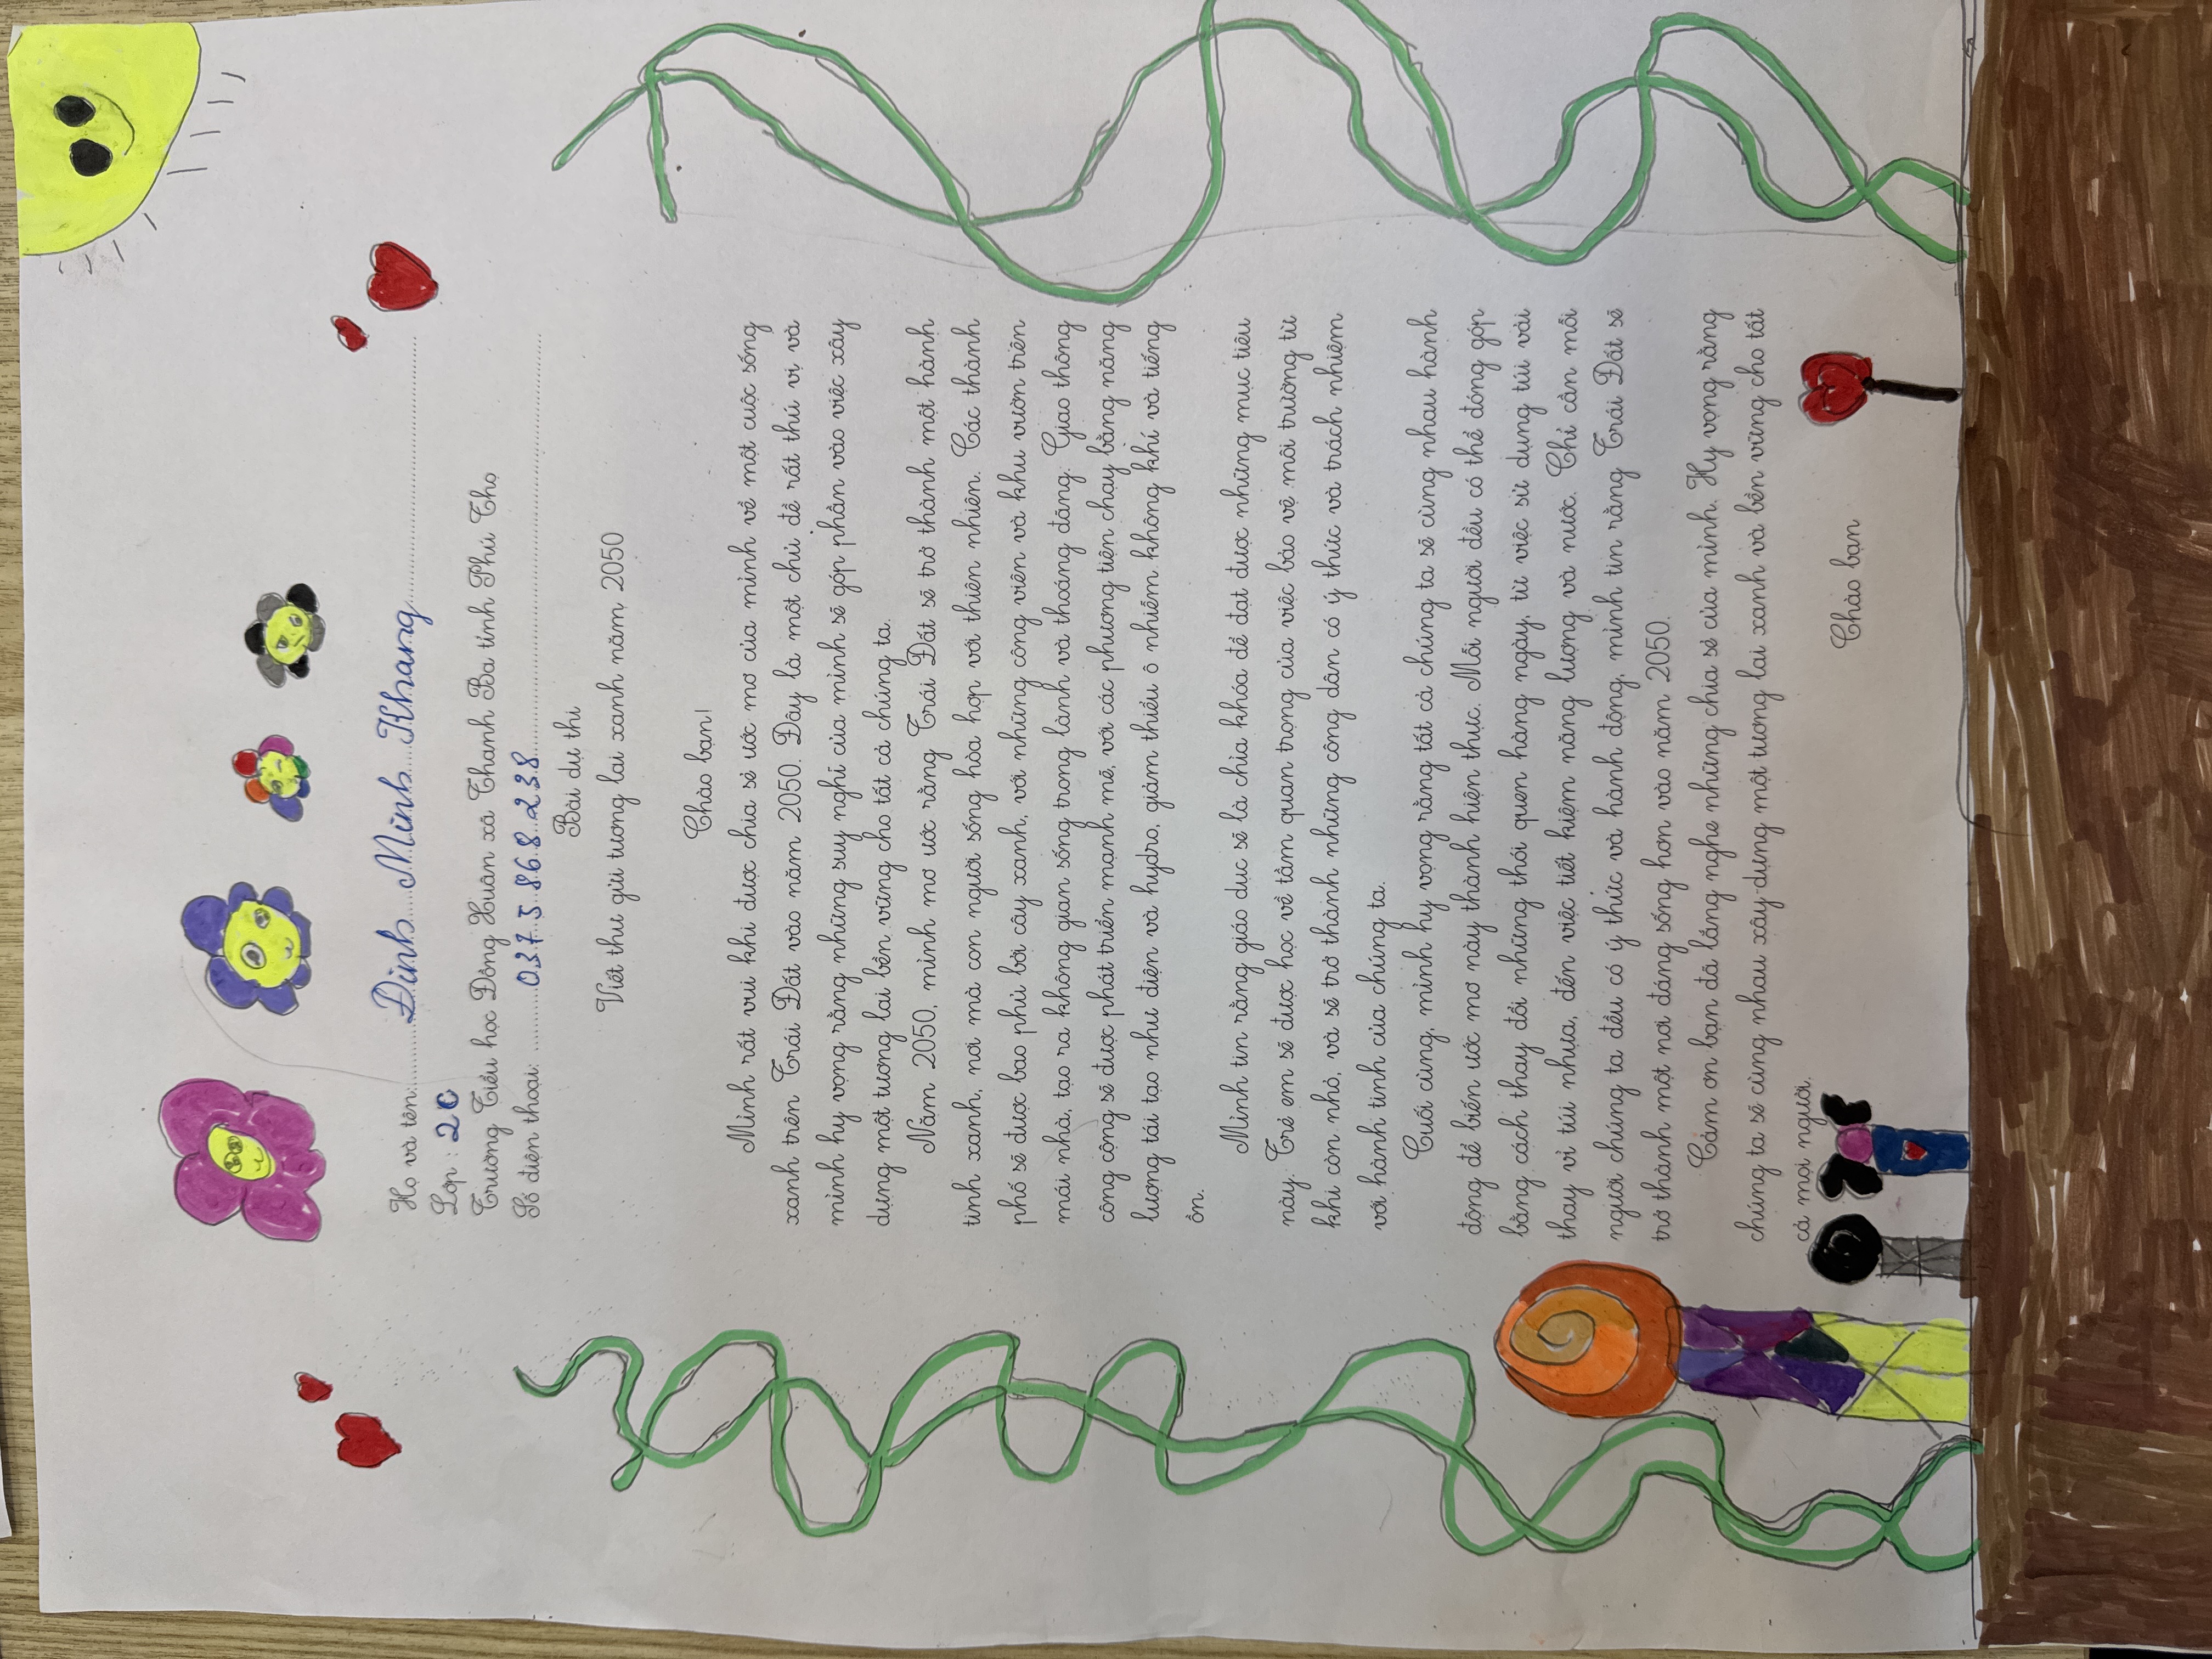 Họ và tên:.........Đinh...Minh...Khang.........
Lớp : 2C
Trường Tiểu học Đồng Xuân xã Thanh Ba tỉnh Phú Thọ
Số điện thoại: .........037.5.86.8.238.........
Bài dự thi
Viết thư gửi tương lai xanh năm 2050
Chào bạn!
Mình rất vui khi được chia sẻ ước mơ của mình về một cuộc sống
xanh trên Trái Đất vào năm 2050. Đây là một chủ đề rất thú vị và
mình hy vọng rằng những suy nghĩ của mình sẽ góp phần vào việc xây
dựng một tương lai bền vững cho tất cả chúng ta.
Năm 2050, mình mơ ước rằng Trái Đất sẽ trở thành một hành
tinh xanh, nơi mà con người sống hòa hợp với thiên nhiên. Các thành
phố sẽ được bao phủ bởi cây xanh, với những công viên và khu vườn trên
mái nhà, tạo ra không gian sống trong lành và thoáng đãng. Giao thông
công cộng sẽ được phát triển mạnh mẽ, với các phương tiện chạy bằng năng
lượng tái tạo như điện và hydro, giảm thiểu ô nhiễm không khí và tiếng
ồn.
Mình tin rằng giáo dục sẽ là chìa khóa để đạt được những mục tiêu
này. Trẻ em sẽ được học về tầm quan trọng của việc bảo vệ môi trường từ
khi còn nhỏ, và sẽ trở thành những công dân có ý thức và trách nhiệm
với hành tinh của chúng ta.
Cuối cùng, mình hy vọng rằng tất cả chúng ta sẽ cùng nhau hành
động để biến ước mơ này thành hiện thực. Mỗi người đều có thể đóng góp
bằng cách thay đổi những thói quen hàng ngày, từ việc sử dụng túi vải
thay vì túi nhựa, đến việc tiết kiệm năng lượng và nước. Chỉ cần mỗi
người chúng ta đều có ý thức và hành động, mình tin rằng Trái Đất sẽ
trở thành một nơi đáng sống hơn vào năm 2050.
Cảm ơn bạn đã lắng nghe những chia sẻ của mình. Hy vọng rằng
chúng ta sẽ cùng nhau xây dựng một tương lai xanh và bền vững cho tất
cả mọi người.
Chào bạn